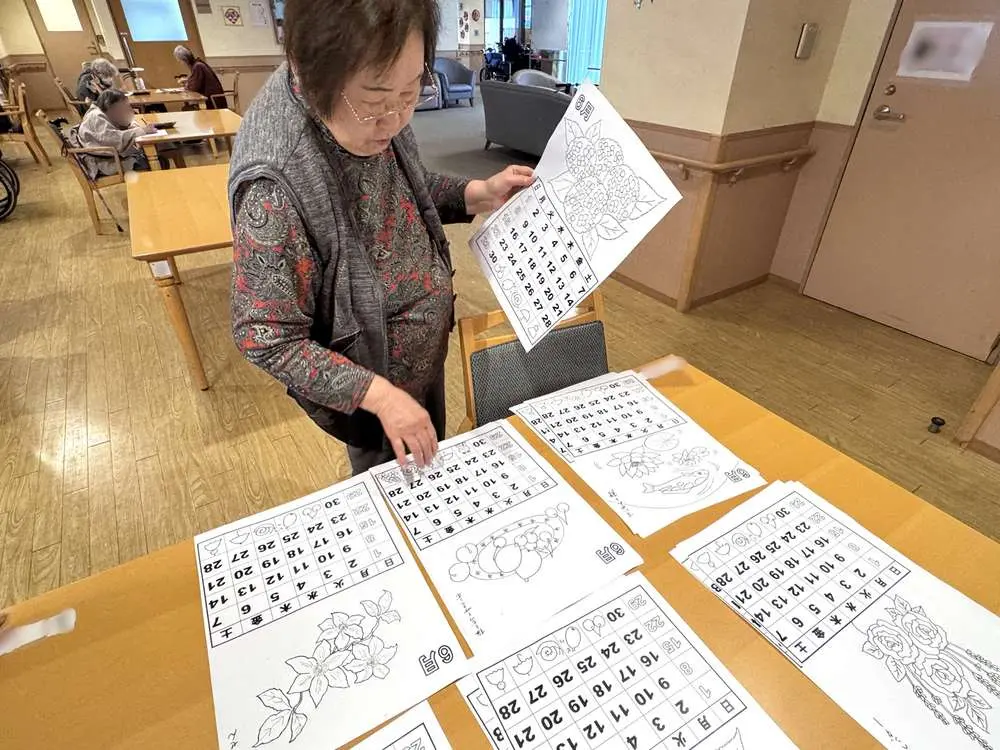 6月
日 月 火 水 木 金 土
1 2 3 4 5 6 7
8 9 10 11 12 13 14
15 16 17 18 19 20 21
22 23 24 25 26 27 28
29 30
6月
日 月 火 水 木 金 土
1 2 3 4 5 6 7
8 9 10 11 12 13 14
15 16 17 18 19 20 21
22 23 24 25 26 27 28
29 30
6月
日 月 火 水 木 金 土
1 2 3 4 5 6 7
8 9 10 11 12 13 14
15 16 17 18 19 20 21
22 23 24 25 26 27 28
29 30
6月
日 月 火 水 木 金 土
1 2 3 4 5 6 7
8 9 10 11 12 13 14
15 16 17 18 19 20 21
22 23 24 25 26 27 28
29 30
日 月 火 水 木 金 土
1 2 3 4 5 6 7
8 9 10 11 12 13 14
15 16 17 18 19 20 21
22 23 24 25 26 27 28
29 30
日 月
1 2 3 4
8 9 10 11
15 16 17 18 19 20 21
22 23 24 25 26 27 28
29 30